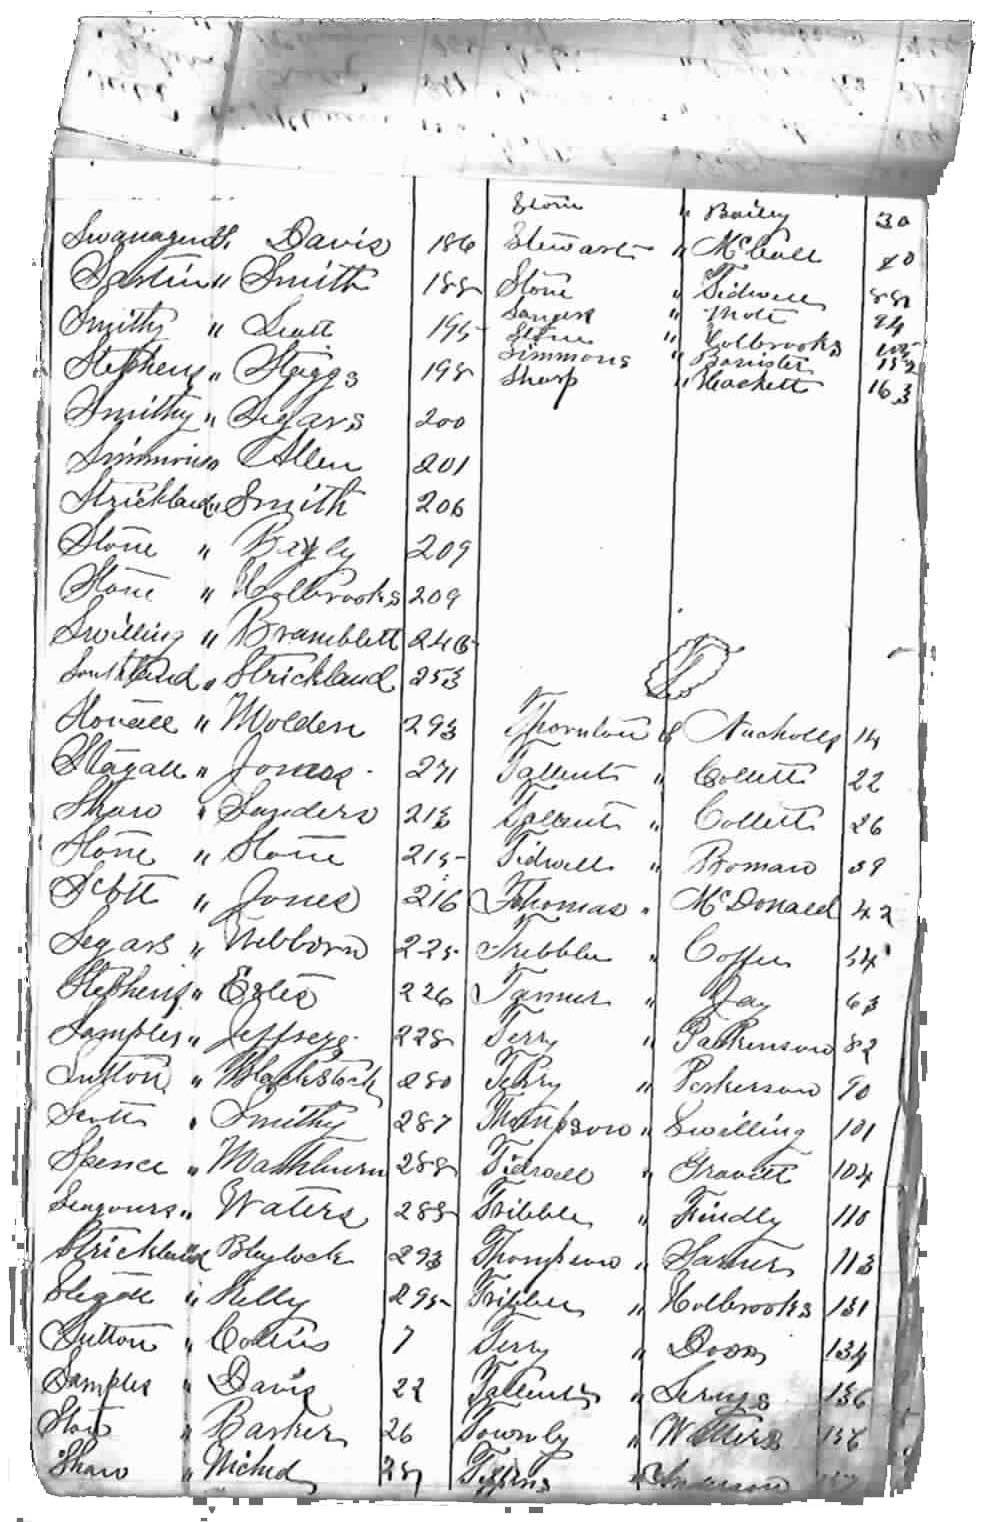 Swanagan & Davis 186
Sartin " Smith 188
Smithy " Scott 195
Stephens " Staggs 198
Smithy " Segars 200
Simmons " Allen 201
Strickland " Smith 206
Stone " Bagly 209
Stone " Holbrooks 209
Swilling " Bramblett 246
Southland " Strickland 253
Stovall " Molden 293
Stagall " Jones 271
Shaw " Sanders 213
Stone " Stone 215
Scott " Jones 216
Segars " Webborn 225
Stephens " Estes 226
Samples " Jeffreys 228
Sutton " Blackstock 280
Scott " Smithy 287
Spence " Mashburn 288
Seagours " Waters 288
Strickland " Blaylock 293
Stegall " Kelly 295
Sutton " Collins 7
Samples " Davis 22
Stow " Barker 26
Shaw "
Stone " Bailey 30
Stewart " McCall 40
Stone " Tidwell 88
Sanders " Mote 94
Stone " Holbrooks
Simmons " Banister 152
Sharp " Hackett 163
T
Thornton & Nucholls 14
Tallent " Collett 22
Tallent " Collett 26
Tidwell " Boman 39
Thomas " McDonald 42
Tribble " Coffee 54
Tanner " Jay 63
Terry " Parkinson 82
Terry " Perkerson 90
Thompson " Swilling 101
Tidwell " Gravitt 104
Tribble " Findly 110
Thompson " Garner 113
Tribble " Holbrooks 131
Terry " Doss 134
Tallent " Scruggs 136
Townly " Watters 136
" Anderson